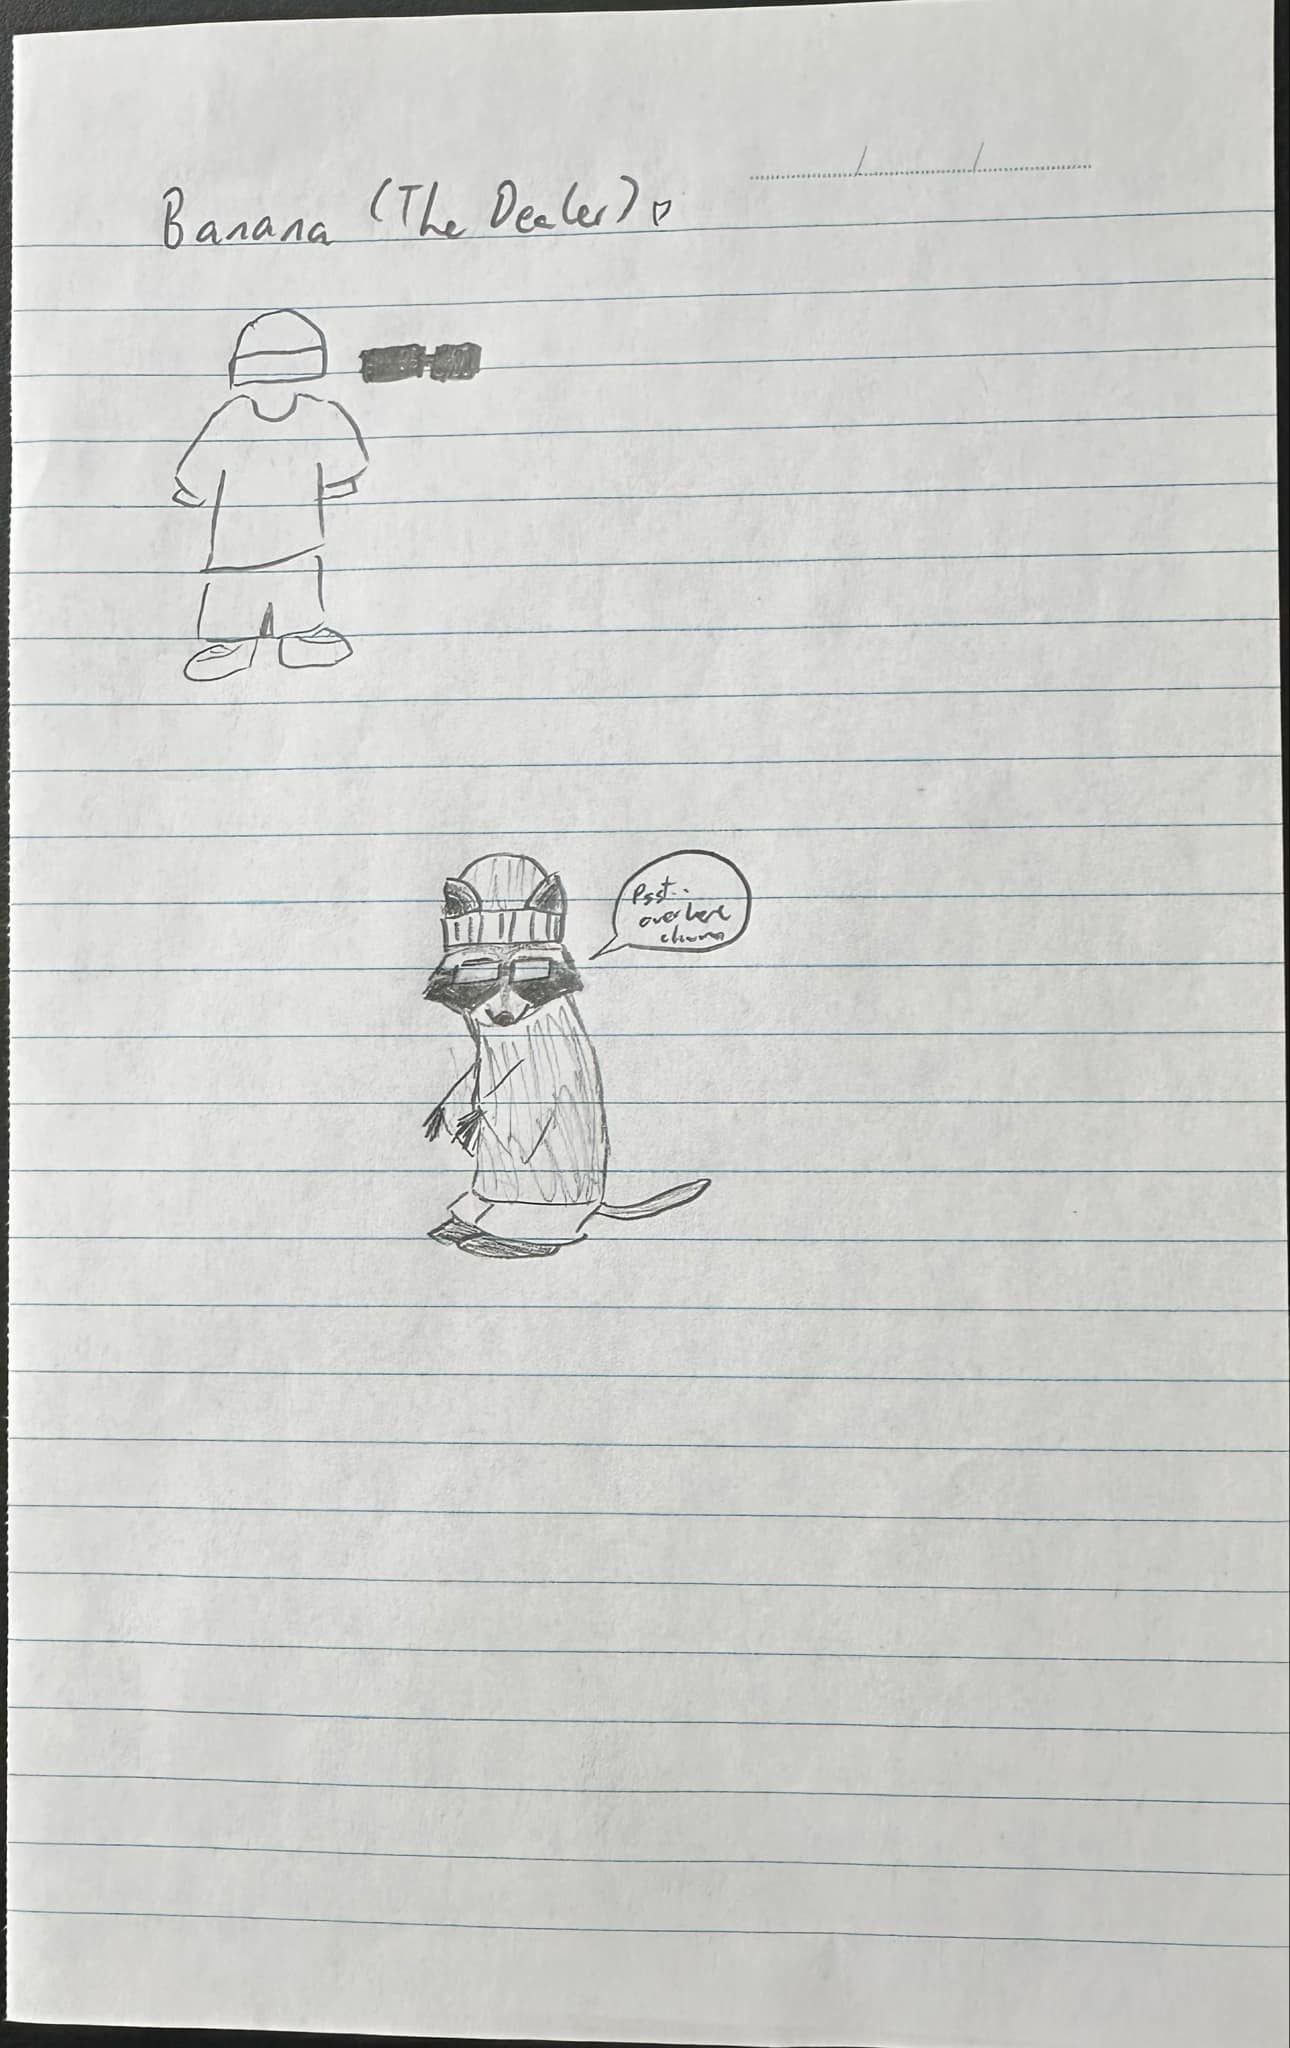 Banana (The Dealer)
Psst..
over here
chum